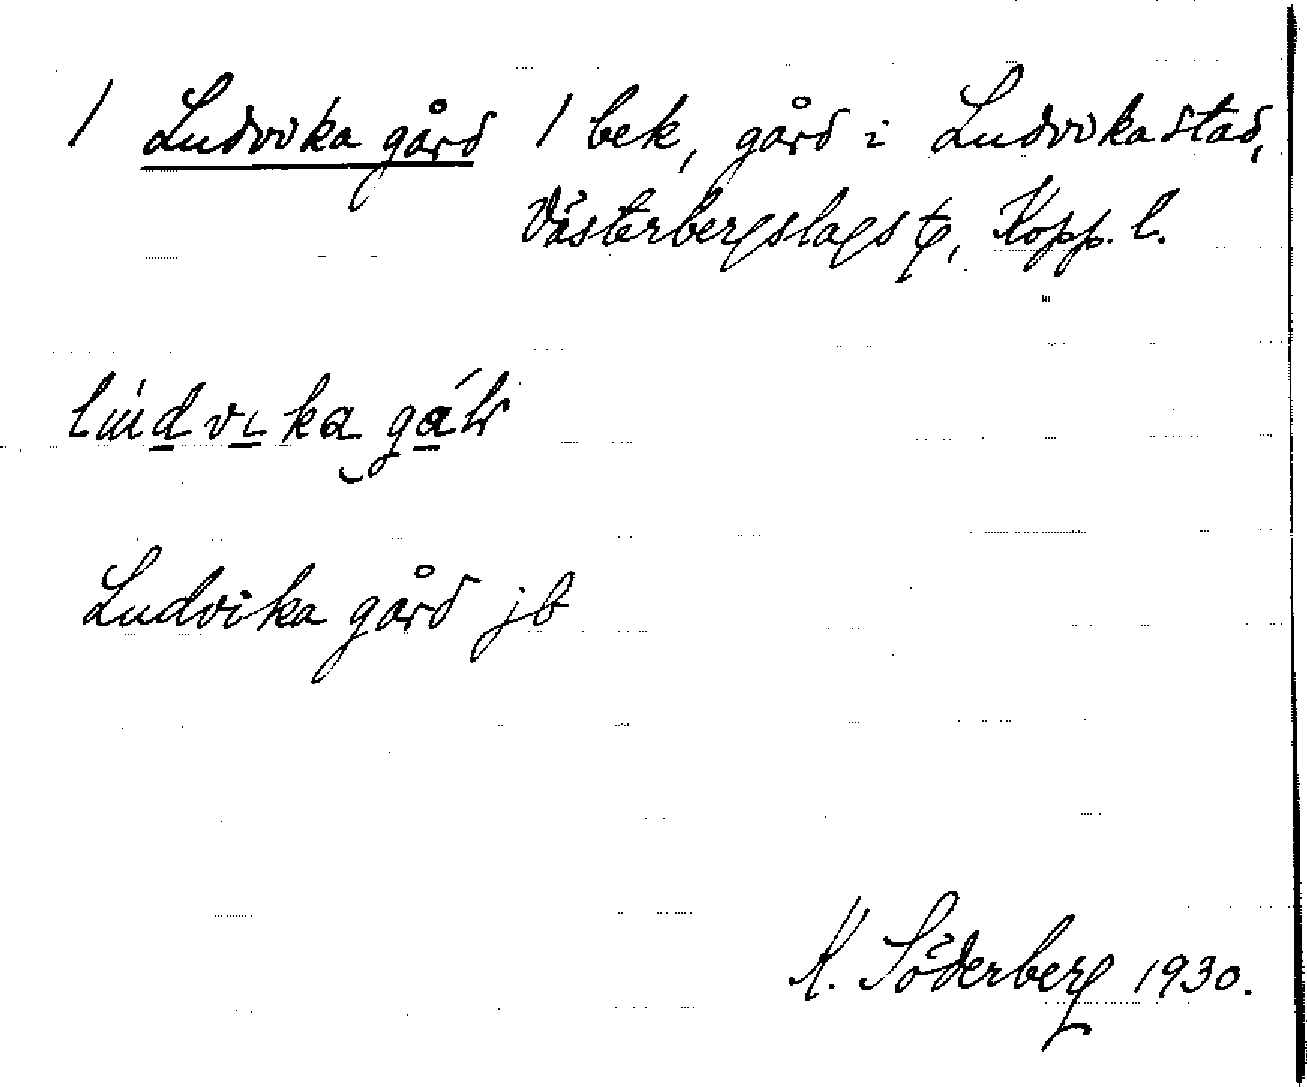 / Ludvika gård / bek, gård i Ludvika stad,
Västerbergslags tg, Kopp. l.
Ludvika gård jb
K. Söderberg 1930.